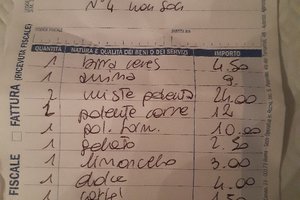 N°4
QUANTITÀ NATURA E QUALITÀ DEI BENI O DEI SERVIZI IMPORTO
1 birra ceres 4.50
1 9.
2 miste polenta 24.00
2 polente carne 12
1 pol. form. 10.00
1 gelato 2.50
1 limoncello 3.00
1 dolce 4.00
1 1.50
FISCALE
FATTURA
(RICEVUTA FISCALE)